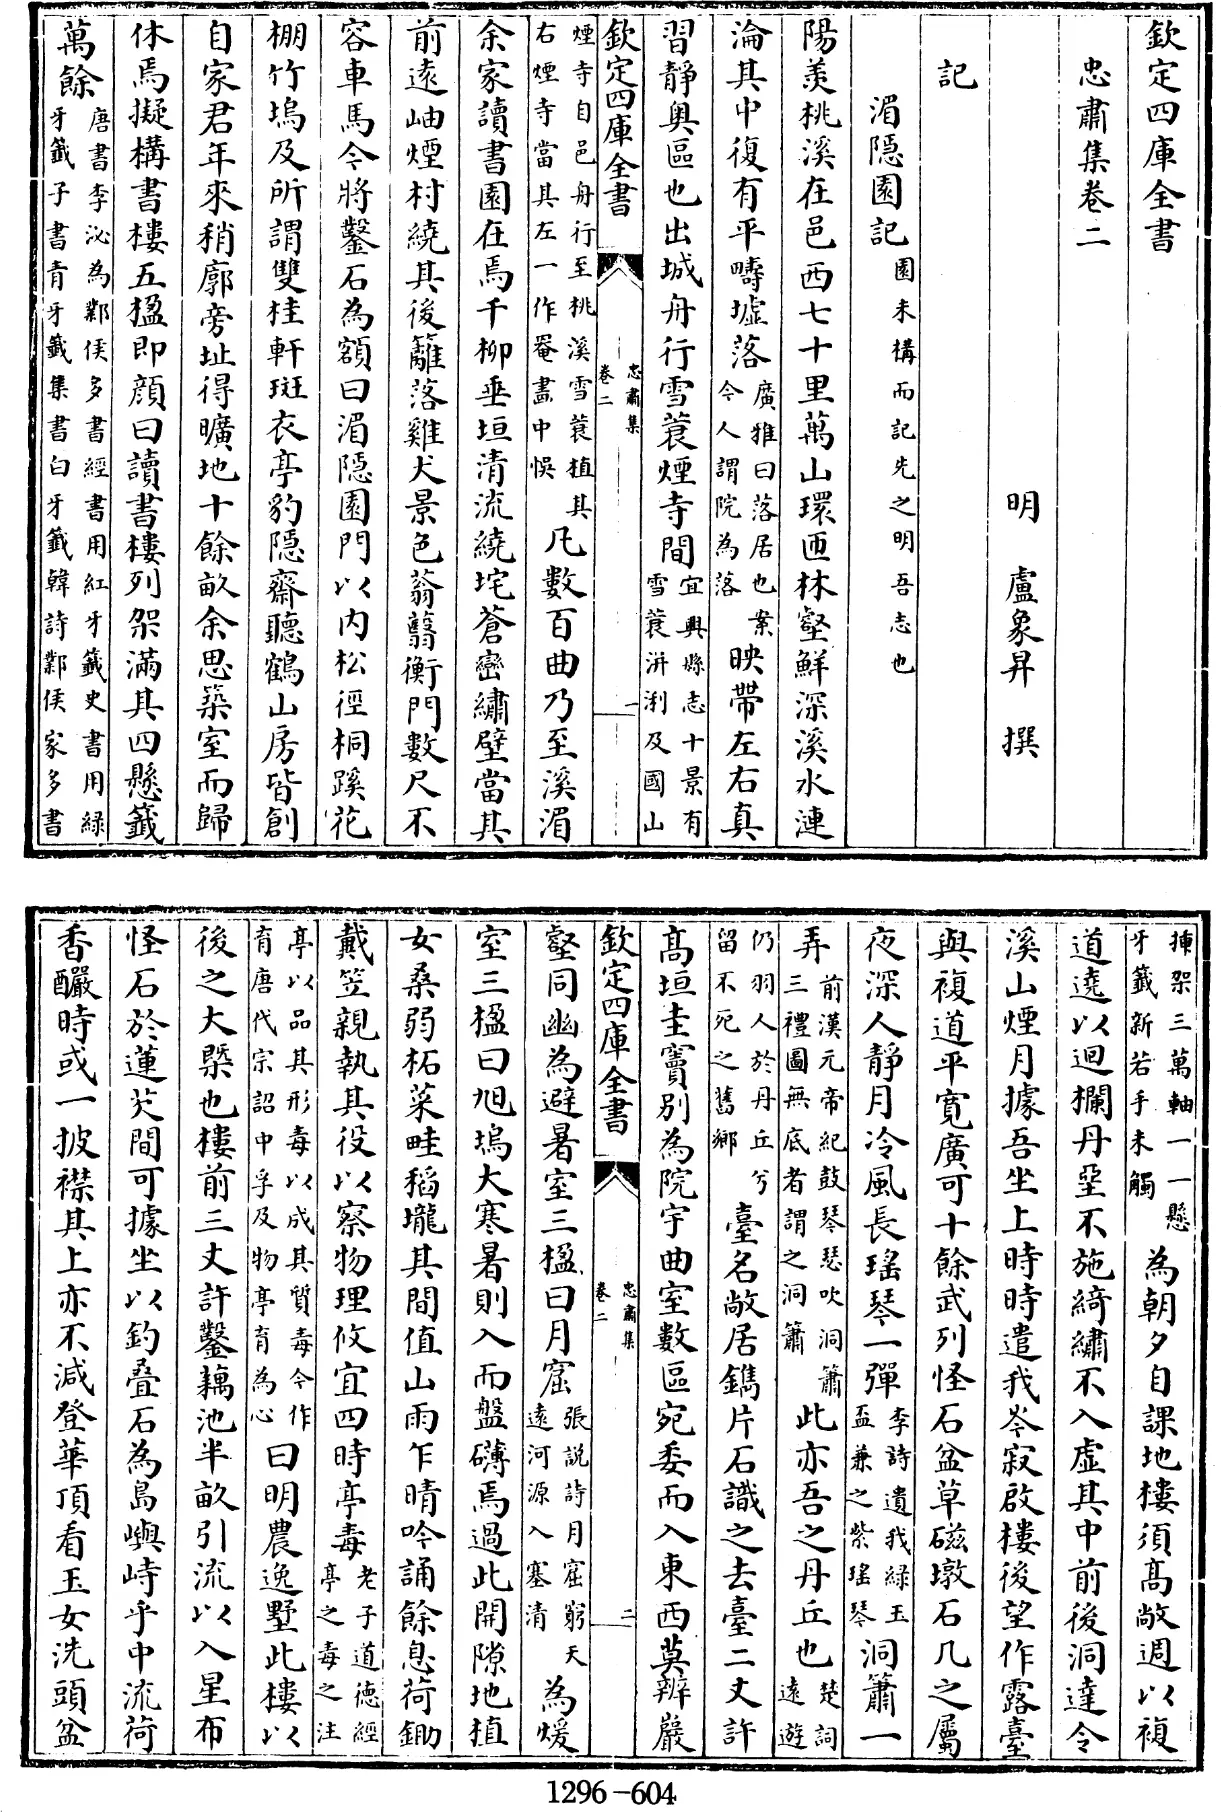 欽定四庫全書
忠肅集卷二
明 盧象昇 撰
記
湄隱園記園未構而記先之明吾志也
陽羨桃溪在邑西七十里萬山環匝林壑鮮深溪水漣
淪其中復有平疇墟落廣雅曰落居也案今人謂院為落映帶左右真
習靜奥區也出城舟行雪蓑煙寺間宜興縣志十景有雪蓑洴浰及國山
欽定四庫全書
忠肅集
卷二
一
煙寺自邑舟行至桃溪雪蓑植其右煙寺當其左一作罨畫中悞凡數百曲乃至溪湄
余家讀書園在焉千柳垂垣清流繞垞蒼巒繡壁當其
前遠岫煙村繞其後籬落雞犬景色蓊翳衡門數尺不
容車馬今將鑿石為額曰湄隱園門以内松徑桐蹊花
棚竹塢及所謂雙桂軒斑衣亭豹隱齋聽鶴山房皆創
自家君年來稍廓旁址得曠地十餘畝余思築室而歸
休焉擬構書樓五楹即顔曰讀書樓列架滿其四懸籤
萬餘唐書李泌為鄴侯多書經書用紅牙籤史書用緑牙籤子書青牙籤集書白牙籤韓詩鄴侯家多書
挿架三萬軸一一懸牙籤新若手未觸為朝夕自課地樓須髙敞週以複
道遶以迴欄丹堊不施綺繡不入虚其中前後洞達令
溪山煙月據吾坐上時時遣我岑寂啟樓後望作露臺
與複道平寛廣可十餘武列怪石盆草磁墩石几之屬
夜深人靜月冷風長瑤琴一彈李詩遺我緑玉盃兼之紫瑤琴洞簫一
弄前漢元帝紀鼓琴瑟吹洞簫三禮圖無底者謂之洞簫此亦吾之丹丘也楚詞遠遊
仍羽人於丹丘兮留不死之舊鄉臺名敞居鐫片石識之去臺二丈許
髙垣圭竇别為院宇曲室數區宛委而入東西莫辨巖
欽定四庫全書
忠肅集
卷二
二
壑同幽為避暑室三楹曰月窟張説詩月窟窮天遠河源入塞清為煖
室三楹曰旭塢大寒暑則入而盤礴焉過此開隙地植
女桑弱柘菜畦稻壠其間值山雨乍晴吟誦餘息荷鋤
戴笠親執其役以察物理攸宜四時亭毒老子道德經亭之毒之注
亭以品其形毒以成其質毒今作育唐代宗詔中孚及物亭育為心曰明農逸墅此樓以
後之大槩也樓前三丈許鑿藕池半畝引流以入星布
怪石於蓮芡間可據坐以釣叠石為島嶼峙乎中流荷
香釅時或一披襟其上亦不減登華頂看玉女洗頭盆
1296-604